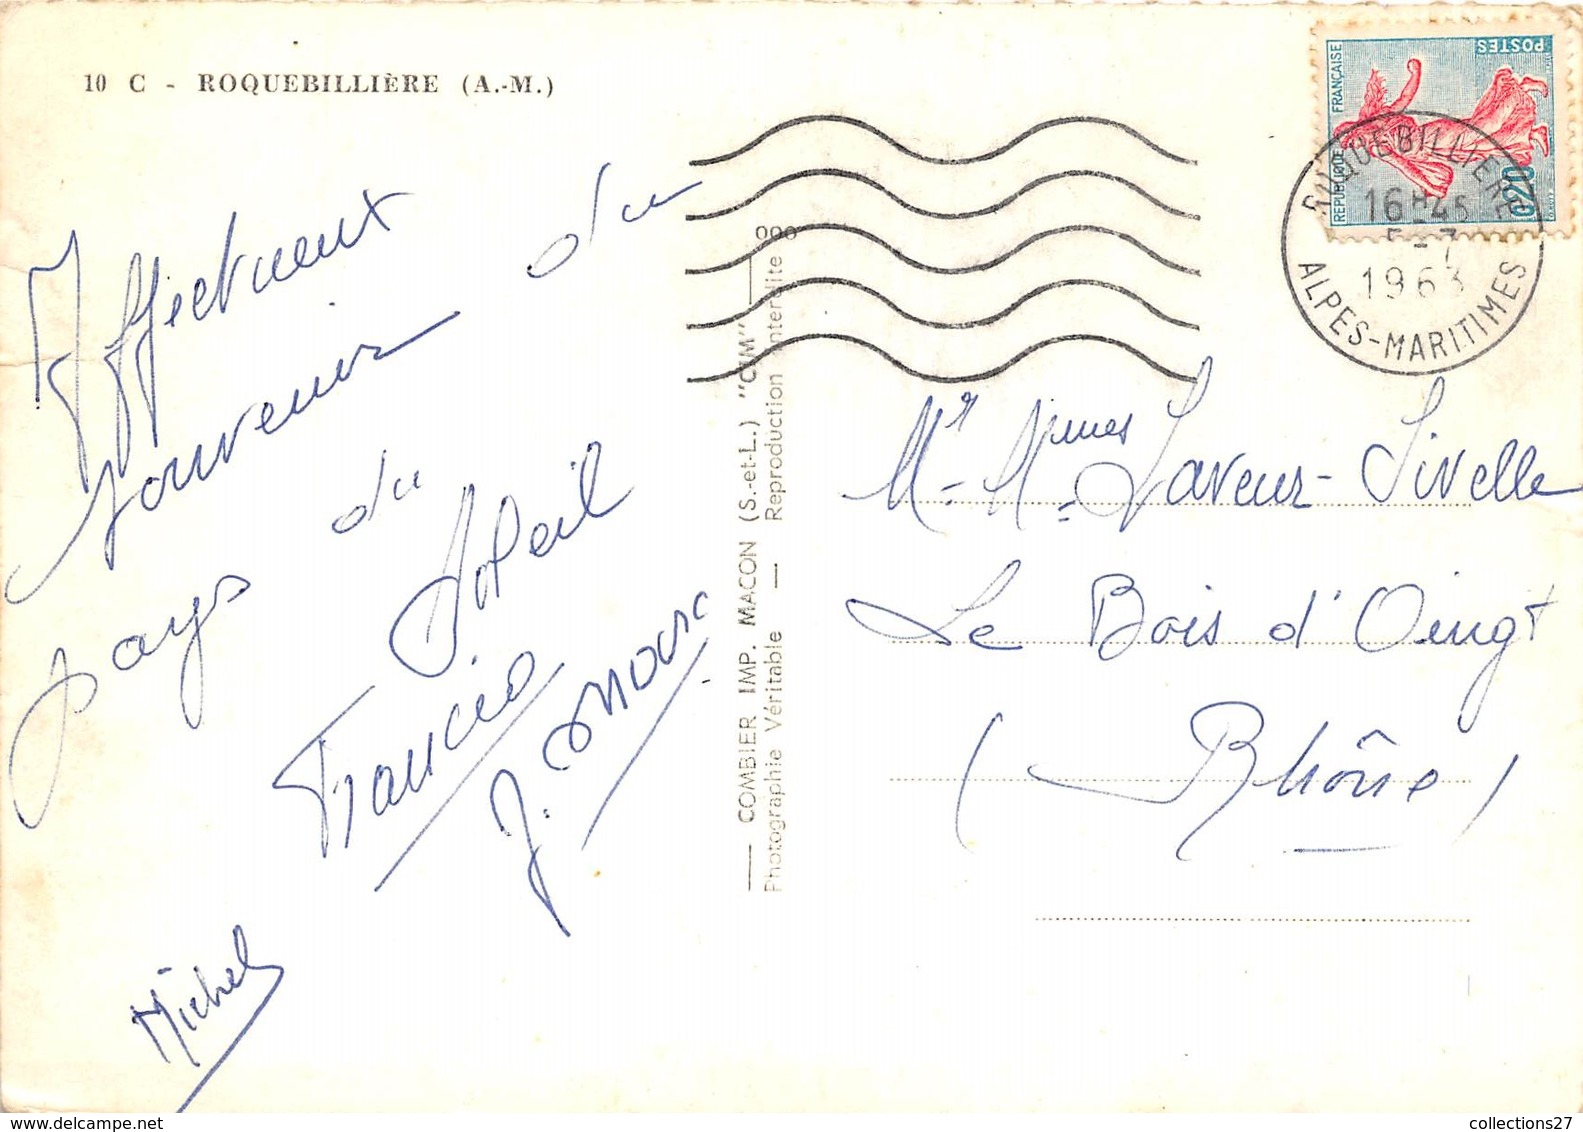 10 C - ROQUEBILLIÈRE (A.-M.)
Affectueux
souvenir du
pays du
Soleil
Francis
J.
Michel
COMBIER IMP. MACON (S.-et-L.) "CIM"
Photographie Véritable — Reproduction interdite
REPUBLIQUE FRANÇAISE
POSTES
0,20
ROQUEBILLIERE
16H45
5-7
1963
ALPES-MARITIMES
Mr - Mmes Laveur-Sivelle
Le Bois d'Oingt
(Rhône)
collections27